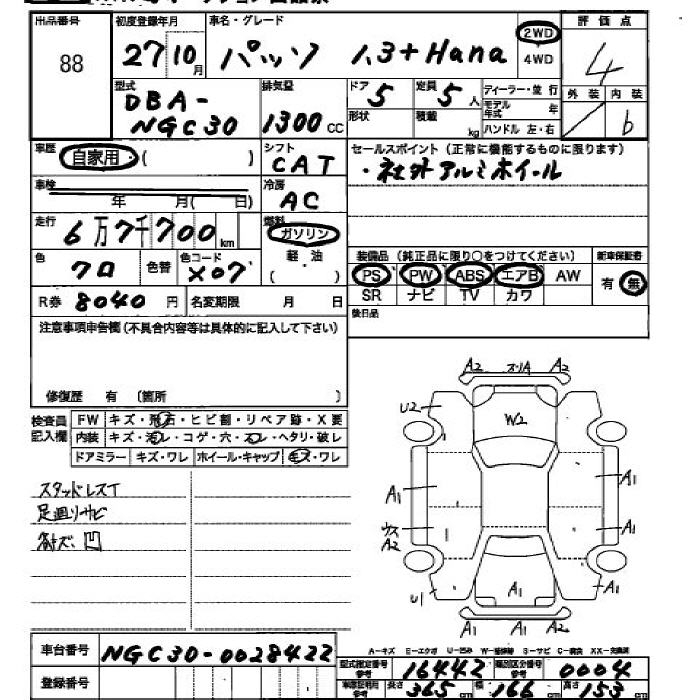 出品番号 初度登録年月 車名・グレード 評価点
88 27 10月 パッソ 1.3+Hana 2WD 4WD 4
型式 DBA-NGC30 排気量 1300CC ドア 5 定員 5人 ディーラー・並行 外装 内装
形状 積載 kg モデル年式 年 ハンドル 左・右 b
車歴 自家用・( ) シフト CAT セールスポイント(正常に機能するものに限ります)
・社外アルミホイール
車検 年 月( 日) 冷房 AC
走行 6万7千700km 燃料 ガソリン
軽・油
( )
色 クロ 色替 色コード X07
装備品(純正品に限り○をつけてください) 新車保証書
PS PW ABS エアB AW 有 無
SR ナビ TV カワ
R券 8040円 名変期限 月 日 後日品
注意事項申告欄(不具合内容等は具体的に記入して下さい)
修復歴 有 〔箇所 〕
検査員記入欄 FW キズ・飛石・ヒビ割・リペア跡・X要
内装 キズ・汚レ・コゲ・穴・スレ・ヘタリ・破レ
ドアミラー キズ・ワレ ホイール・キャップ キズ・ワレ
スタッドレスT
足廻りサビ
凹
A2 スリA A2
U2 W2
A1 A1
ウス A2 A1
U1 A1 A1
A1 A1
A-キズ E-エクボ U-凹み W-補修跡 S-サビ C-腐食 XX-交換済
車台番号 NGC30-0028422
登録番号
型式指定番号 参考 16442 類別区分番号 参考 0004
車庫証明用 参考 長さ 365cm 幅 166cm 高さ 153cm